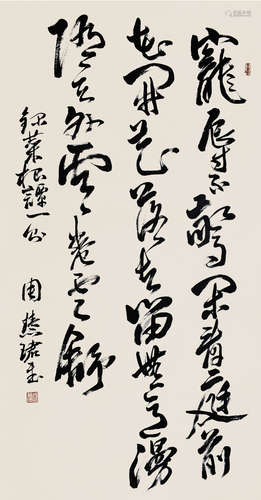 寵辱不驚閒看庭前
花開花落去留無意漫
隨天外雲卷雲舒
錄菜根譚一則
周慧珺書